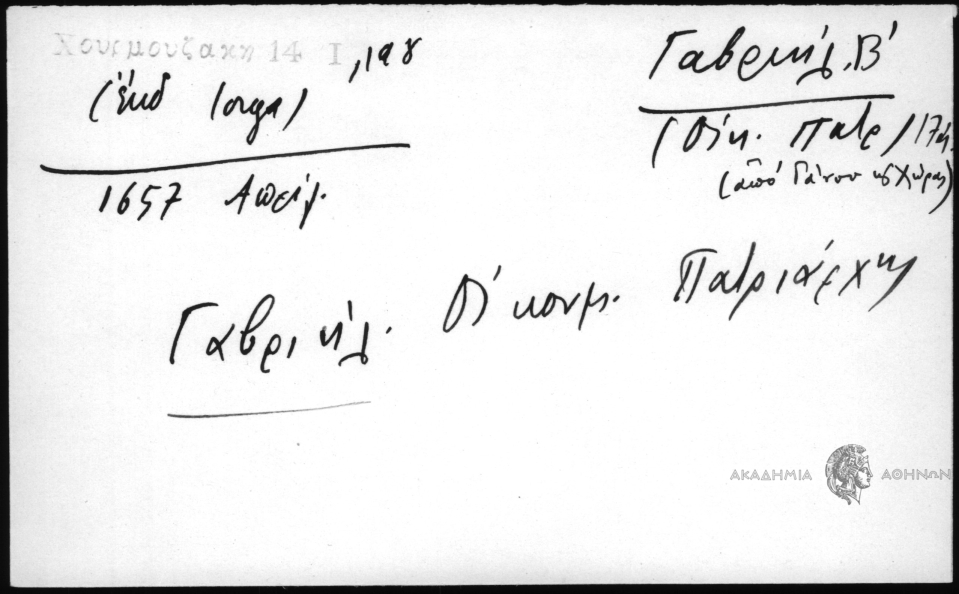 Χουρμουζακη 14 I
(έκδ Iorga)
1657 Απρίλ.
Γαβριήλ Β΄
(Οἰκ. Πατρ) 17
(ἀπό Γάνου κ Χώρας)
Γαβριήλ. Οἰκουμ. Πατριάρχης
ΑΚΑΔΗΜΙΑ ΑΘΗΝΩΝ